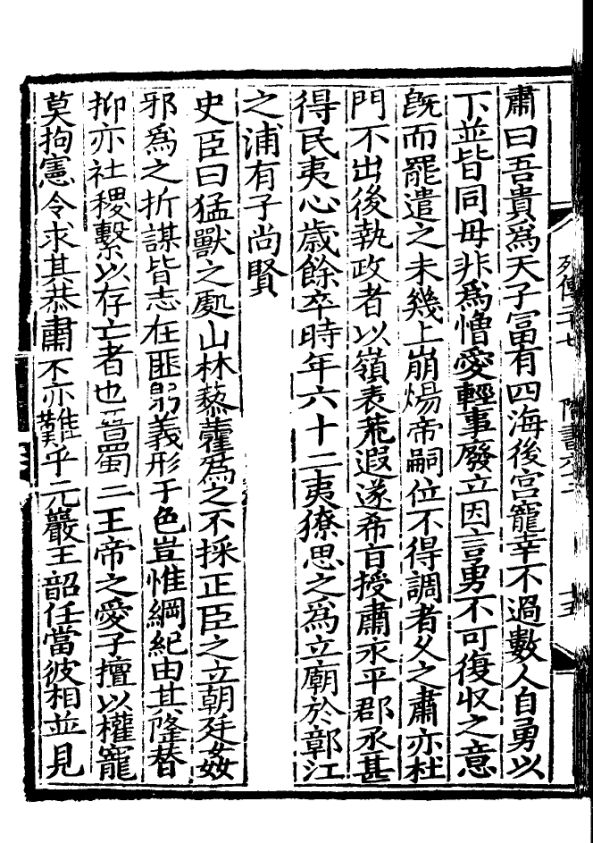 肅曰吾貴爲天子冨有四海後宫寵幸不過數人自勇以
下並皆同毋非爲憎愛輕事廢立因言勇不可復収之意
旣而罷遣之未幾上崩煬帝嗣位不得調者乆之肅亦杜
門不出後執政者以嶺表荒遐遂希旨授肅永平郡丞甚
得民夷心歳餘卒時年六十二夷獠思之爲立廟於鄣江
之浦有子尚賢
史臣曰猛獸之處山林藜藿爲之不採正臣之立朝廷姦
邪爲之折謀皆志在匪躬義形于色豈惟綱紀由其隆替
抑亦社稷繫以存亡者也晋蜀二王帝之愛子擅以權寵
莫拘憲令求其恭肅不亦難乎元巖王韶任當彼相並見
列傳二十七
隋書六十二
十五